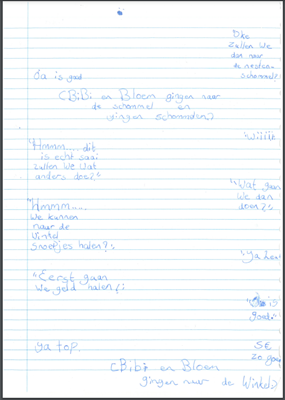 Oke
zullen we
dan naar
de
schommel?
da is goed
(BiBi en Bloem gingen naar
de schommel en
gingen schommelen)
"wiiiit
"Hmmm..... dit
is echt saai
zullen we wat
anders doen?"
"Wat gaan
we dan
doen?"
"Hmmm....
we kunnen
naar de
winkel
snoepjes halen?"
"ja
"Eerst gaan
we geld halen!"
is
goed"
ja top.
5€
zo
(Bibi en Bloem
gingen naar de winkel)